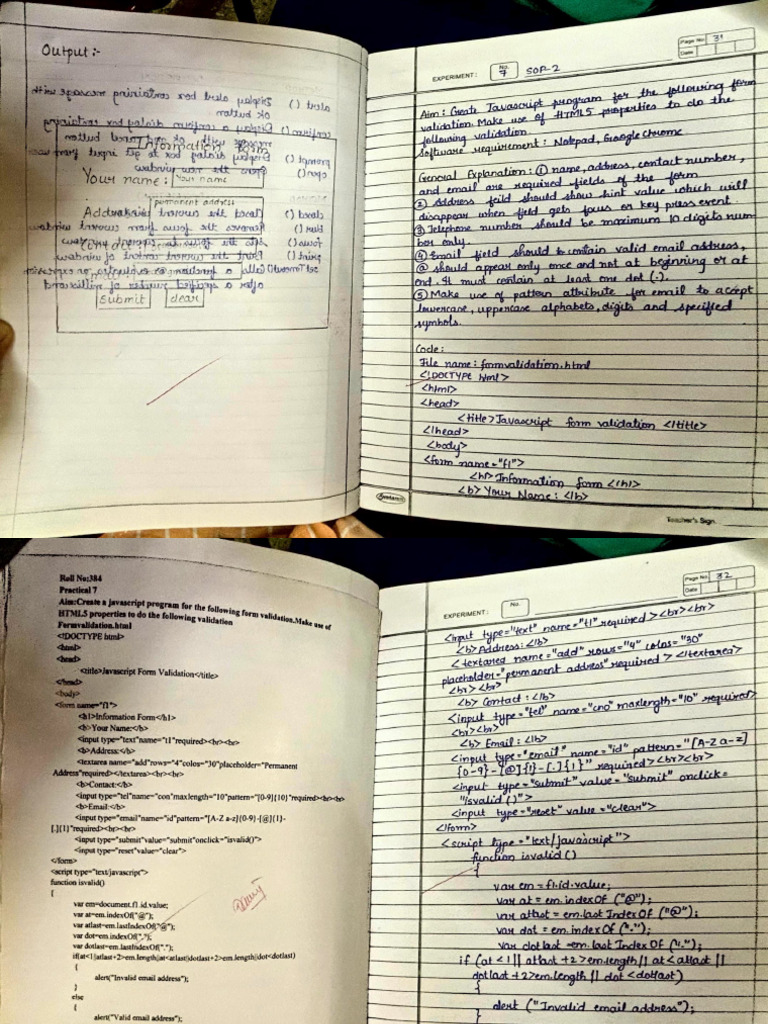 Output:-
Information form
Your name: Your name
permanent address
Submit clear
Page No. 31
Date
EXPERIMENT: No. 7 SOP-2
Aim: Create Javascript program for the following form
validation. Make use of HTML5 properties to do the
following validation
Software requirement: Notepad, Google Chrome
General Explanation: ① name, address, contact number,
and email are required fields of the form
② Address feild should show hint value which will
disappear when field gets focus or key press event.
③ Telephone number should be maximum 10 digits num-
ber only.
④ Email field should to contain valid email address,
@ should appear only once and not at beginning or at
end. It must contain at least one dot (.).
⑤ Make use of pattern attribute for email to accept
lowercase, uppercase alphabets, digits and specified
symbols.
Code:
File name: formvalidation.html
<!DOCTYPE html>
<html>
<head>
<title>Javascript form validation </title>
</head>
<body>
<form name="f1">
<h1>Information form </h1>
<b> Your Name: </b>
Teacher's Sign.
Roll No:384
Practical 7
Aim:Create a javascript program for the following form validation.Make use of
HTML5 properties to do the following validation
Formvalidation.html
<!DOCTYPE html>
<html>
<head>
<title>Javascript Form Validation</title>
</head>
<body>
<form name="f1">
<h1>Information Form</h1>
<b>Your Name:</b>
<input type="text"name="t1"required><br><br>
<b>Address:</b>
<textarea name="add"rows="4"coles="30"placeholder="Permanent
Address"required></textares><br><br>
<b>Contact:</b>
<input type="tel"name="con"maxlength="10"pattern="[0-9]{10}"required><br><br>
<b>Email:</b>
<input type="email"name="id"pattern="[A-Z a-z]{0-9}-[@]{1}-
[.]{1}"required><br><br>
<input type="submit"value="submit"onclick="isvalid()">
<input type="reset"value="clear">
</form>
<script type="text/javascript">
function isvalid()
{
var em=document.f1.id.value;
var at=em.indexOf("@");
var atlast=em.lastIndexOf("@");
var dot=em.indexOf(".");
var dotlast=em.lastIndexOf(".");
if(at<1||atlast+2>em.length|at<atlast||dotlast+2>em.length||dot<dotlast)
{
alert("Invalid email address");
}
else
{
alert("Valid email address");
Page No. 32
Date
EXPERIMENT: No.
<input type="text" name="t1" required ><br><br>
<b>Address: </b>
< textarea name="add" rows="4" colns="30"
placeholder="permanent address" required > </textarea>
<br><br>
<b> Contact: </b>
<input type="tel" name="cno" maxlength="10" required>
<br><br>
<b> Email: </b>
<input type="email" name="id" pattern="[A-Z a-z]
{0-9}-[@]{1}-[.]{1}" required><br><br>
<input type="submit" value="submit" onclick=
"isvalid()">
<input type="reset" value="clear">
</form>
<script type="text/javascript">
function isvalid()
{
var em = f1.id.value;
var at = em.indexOf ("@");
var atlast = em.last IndexOf ("@");
var dot = em.indexOf (".");
var dotlast =em.last IndexOf (".");
if (at <1 || atlast +2 >em.length || at< atlast ||
dotlast +2>em.length || dot <dotlast)
{
alert ("Invalid email address");
}